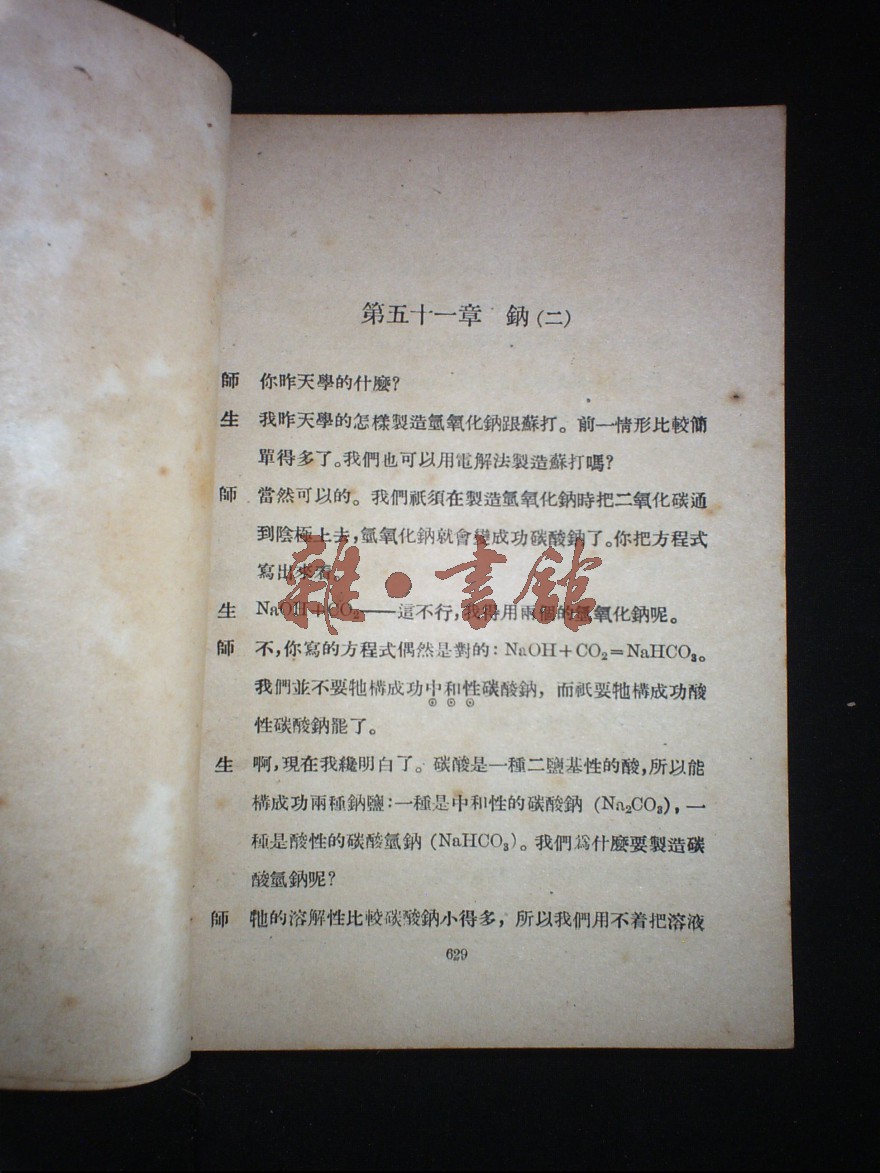 第五十一章 鈉(二)
師 你昨天學的什麼?
生 我昨天學的怎樣製造氫氧化鈉跟蘇打。前一情形比較簡
單得多了。我們也可以用電解法製造蘇打嗎?
師 當然可以的。我們祇須在製造氫氧化鈉時把二氧化碳通
到陰極上去,氫氧化鈉就會變成功碳酸鈉了。你把方程式
寫出來看。
生 NaOH+CO₂——這不行,我得用兩個的氫氧化鈉呢。
師 不,你寫的方程式偶然是對的:NaOH+CO₂=NaHCO₃。
我們並不要牠構成功中和性碳酸鈉,而祇要牠構成功酸
性碳酸鈉罷了。
生 啊,現在我纔明白了。碳酸是一種二鹽基性的酸,所以能
構成功兩種鈉鹽:一種是中和性的碳酸鈉 (Na₂CO₃),一
種是酸性的碳酸氫鈉 (NaHCO₃)。我們爲什麼要製造碳
酸氫鈉呢?
師 牠的溶解性比較碳酸鈉小得多,所以我們用不着把溶液
629
雜·書館